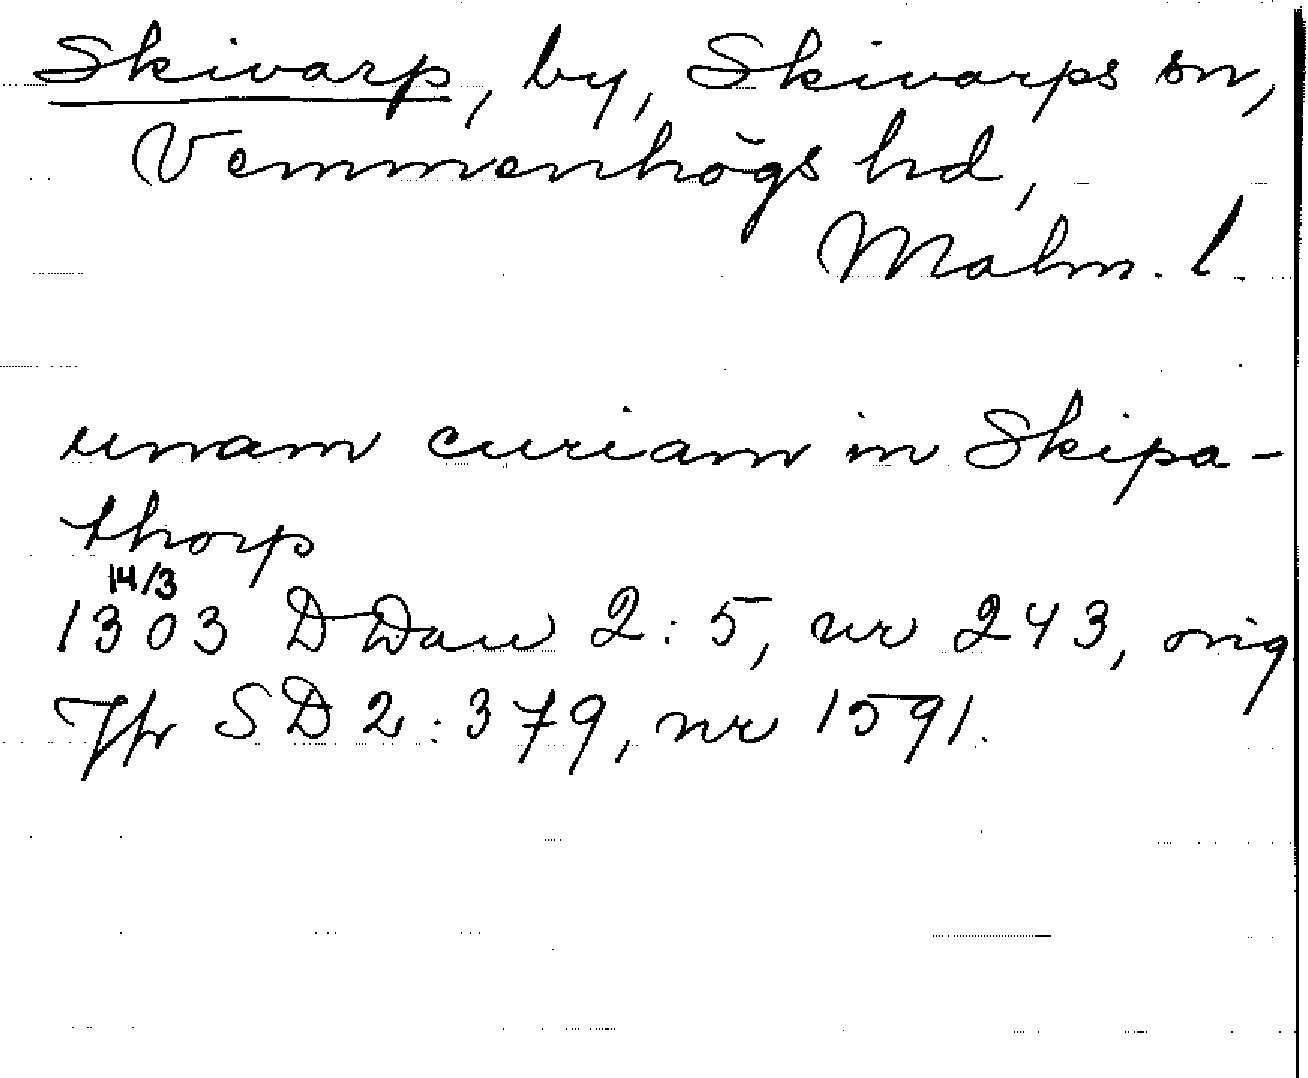 Skivarp, by, Skivarps sn,
Vemmenhögs hd,
Malm. l.
unam curiam in Skipa-
thorp
14/3
1303 DDan 2:5, nr 243, orig
Jfr SD 2:379, nr 1591.